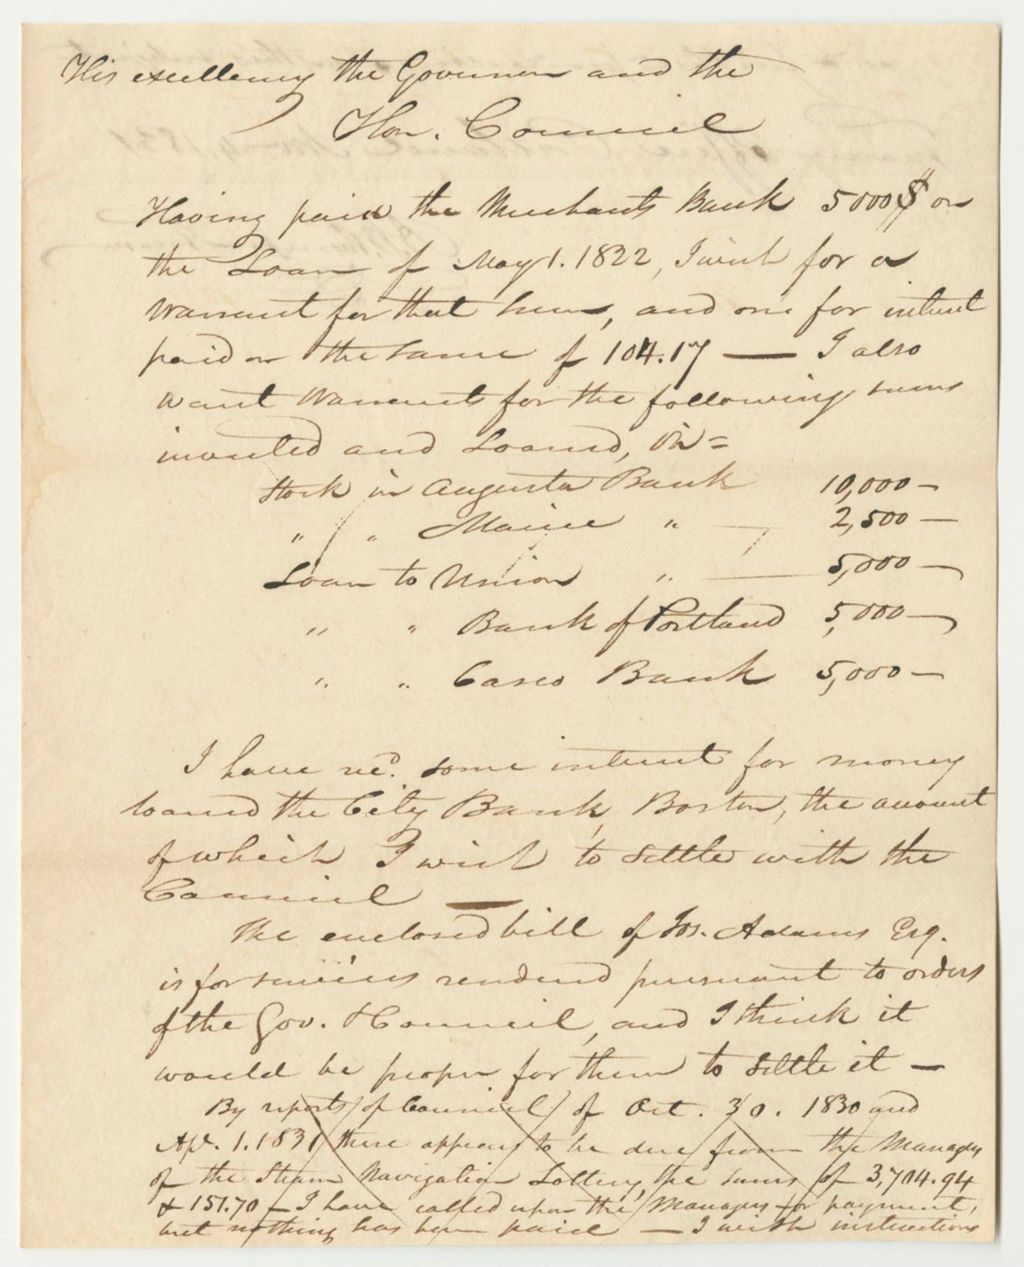 His excellency the Governor and the
Hon. Council
Having paid the Merchants Bank 5000$ on
the Loan of May 1. 1822, I wish for a
Warrant for that sum, and one for interest
paid on the same of 104.17 — I also
want Warrants for the following sums
invested and Loaned, viz =
Stock in Augusta Bank 10,000 —
" " Maine " — 2,500 —
Loan to Union " — 5,000 —
" " Bank of Portland 5,000 —
" " Casco Bank 5,000 —
I have recd. some interest for money
loaned the City Bank, Boston, the amount
of which I wish to settle with the
Council —
The enclosed bill of Jos. Adams Esq.
is for services rendered pursuant to orders
of the Gov. & Council, and I think it
would be proper for them to settle it —
By reports of Council of Oct. 30. 1830 and
Apl. 1. 1831 there appears to be due from the Managers
of the Steam Navigation Lottery, the sums of 3,704.94
& 151.70 — I have called upon the Managers for payment,
but nothing has been paid — I wish instructions